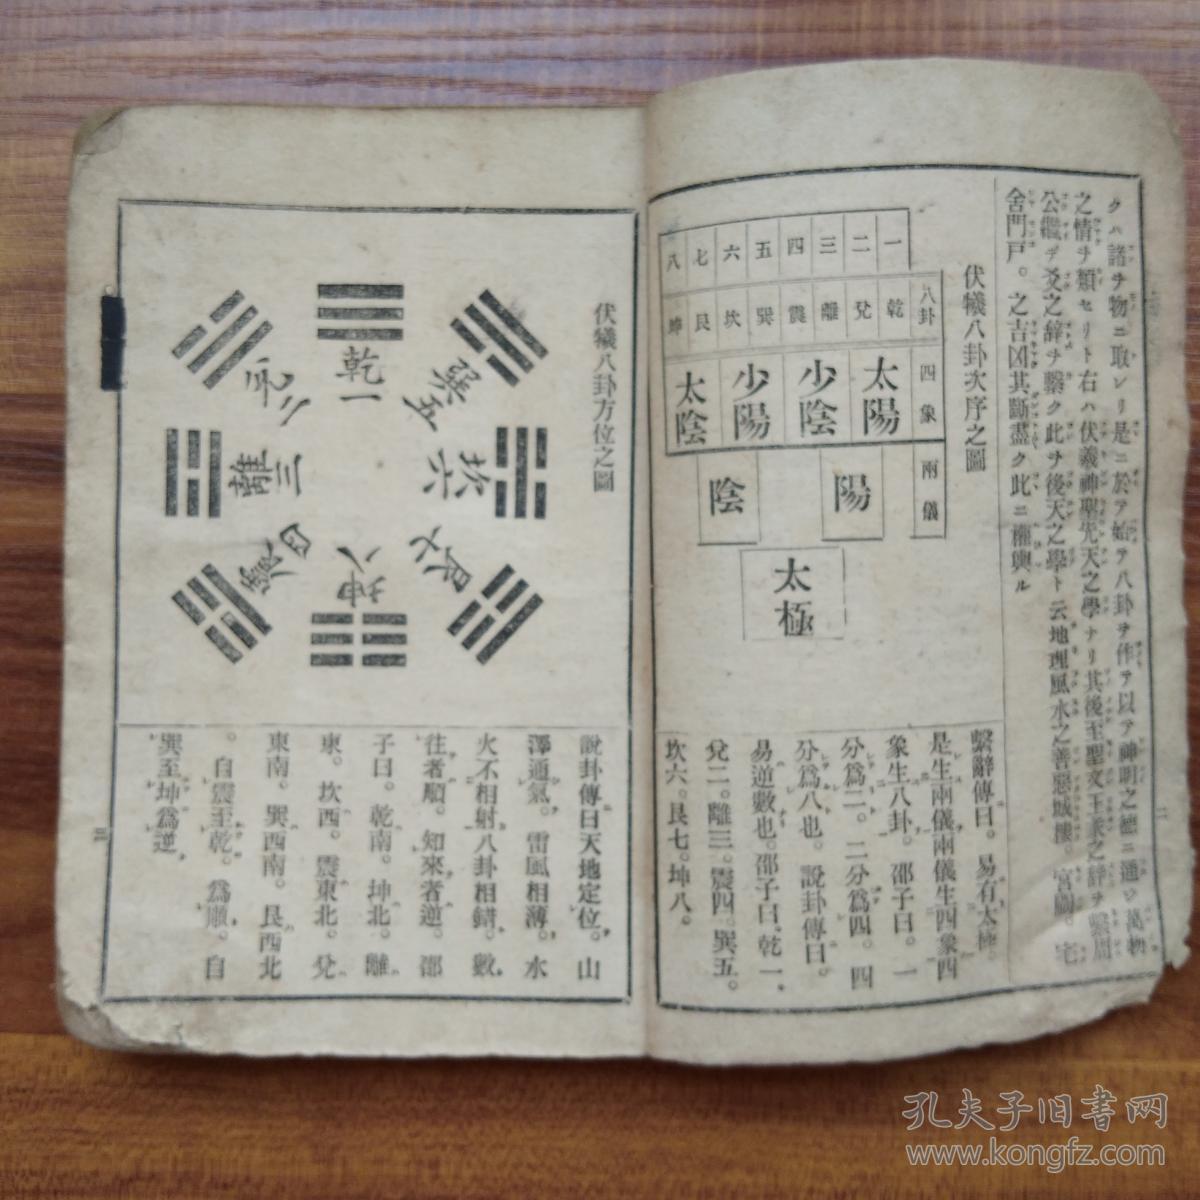 クハ諸ヲ物ニ取レリ是ニ於テ始テ八卦ヲ作テ以テ神明之德ニ通シ萬物
之情ヲ類セリト右ハ伏羲神聖先天之學ナリ其後至聖文王彖之辞ヲ繋周
公繼テ爻之辞ヲ繋ク此ヲ後天之學ト云地理風水之善惡城樓。宮闕。宅
舍門戸。之吉凶其斷盡ク此ニ權輿ル
伏犧八卦次序之圖
一 二 三 四 五 六 七 八
八卦 乾 兌 離 震 巽 坎 艮 坤
四象 太陽 少陰 少陽 太陰
兩儀 陽 陰
太極
繫辭傳曰。易有太極。
是生兩儀兩儀生四象四
象生八卦。邵子曰。一
分爲二。二分爲四。四
分爲八也。說卦傳曰。
易逆數也。邵子曰。乾一、
兌二。離三。震四。巽五。
坎六。艮七。坤八。
二
伏犧八卦方位之圖
乾一
兌二
離三
震四
巽五
坎六
艮七
坤八
說卦傳曰天地定位。山
澤通氣。雷風相薄。水
火不相射八卦相錯。數
往者順。知來者逆。邵
子曰。乾南。坤北。離
東。坎西。震東北。兌
東南。巽西南。艮西北
。自震至乾。爲順。自
巽至坤爲逆
三
孔夫子旧书网
www.kongfz.com